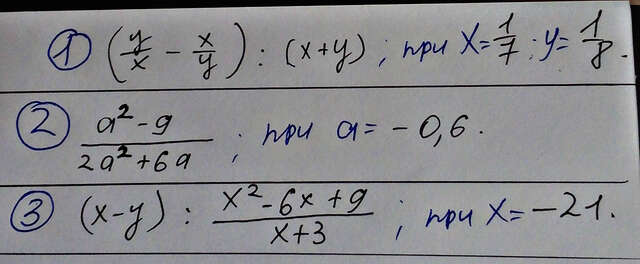 ① (y/x - x/y) : (x+y) ; при x = 1/7 ; y = 1/8.
② (a² - 9)/(2a² + 6a) ; при a = -0,6.
③ (x-y) : (x² - 6x + 9)/(x+3) ; при x = -21.